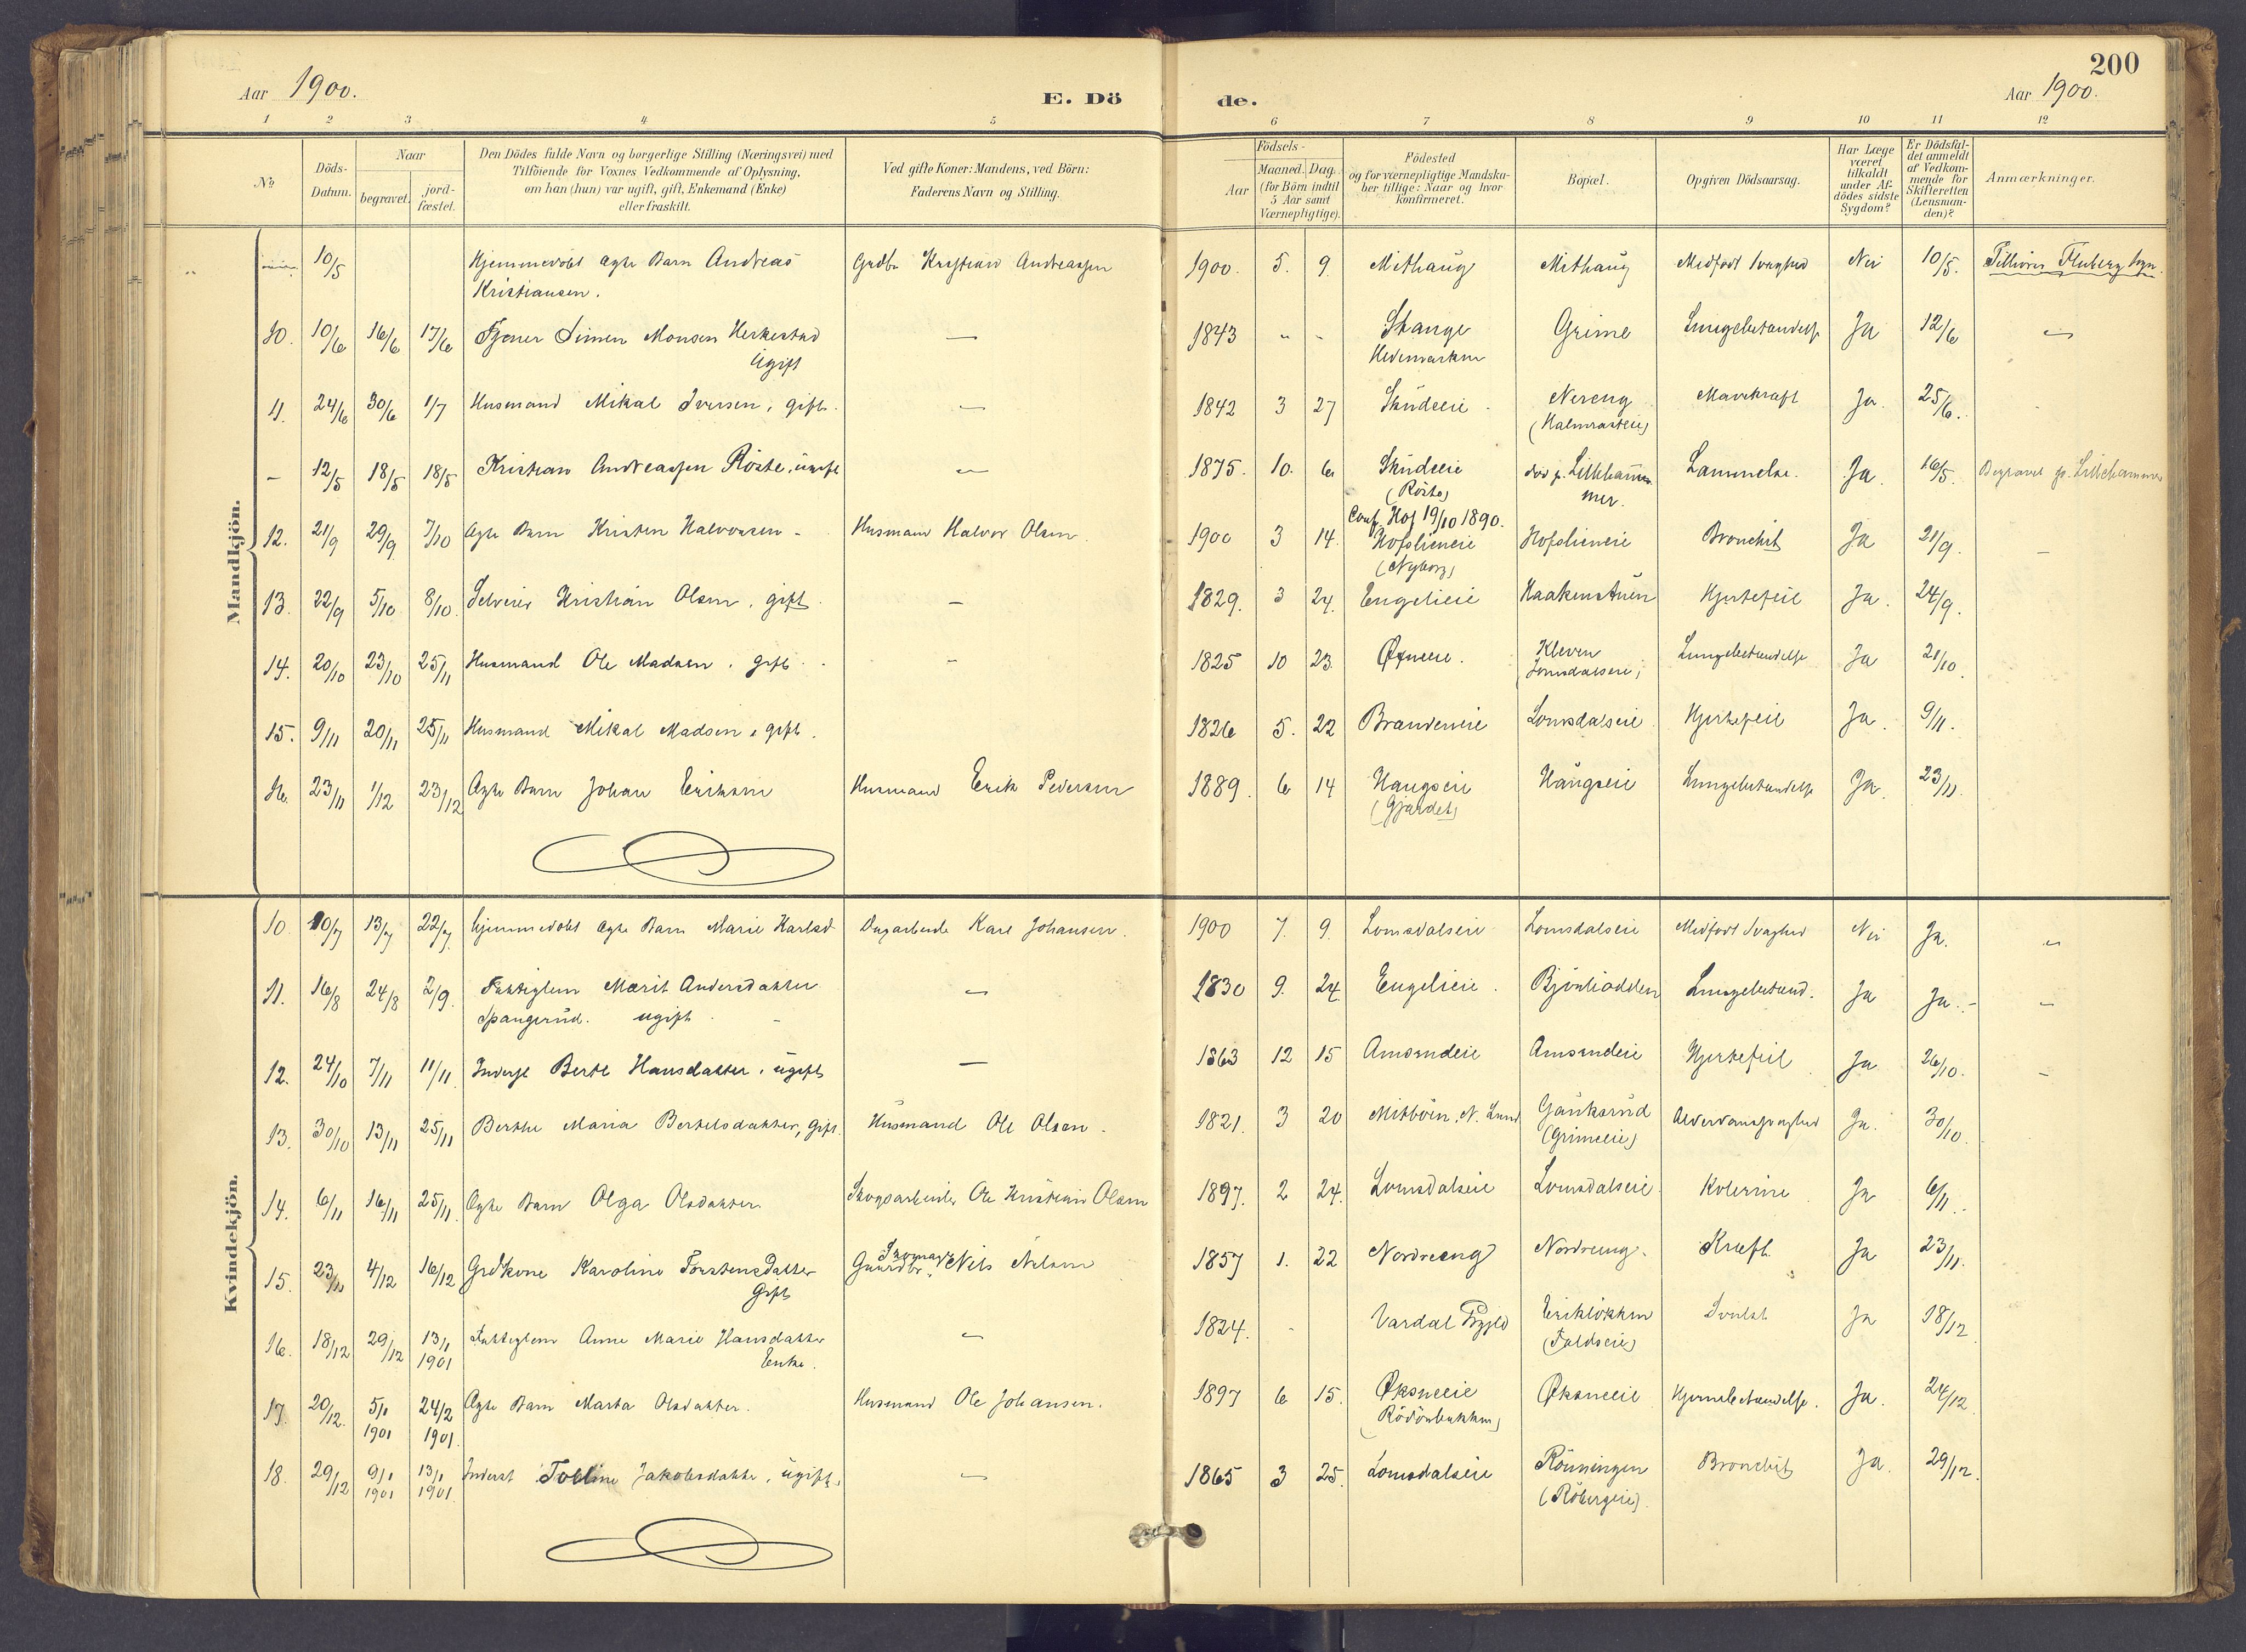 200
Aar 1900.
E. Dö
de.
Aar 1900.
1 2 3 4 5 6 7 8 9 10 11 12
No
Döds-
Datum.
Naar
begravet.
jord-
fæstet.
Den Dödes fulde Navn og borgerlige Stilling (Næringsvei) med
Tilföiende for Voxnes Vedkommende af Oplysning,
om han (hun) var ugift, gift, Enkemand (Enke)
eller fraskilt.
Ved gifte Koner: Mandens, ved Börn:
Faderens Navn og Stilling.
Födsels-
Aar
Maaned. Dag.
(for Börn indtil
5 Aar samt
Værnepligtige).
Födested
og for værnepligtige Mandska-
ber tillige: Naar og hvor
konfirmeret.
Bopæl.
Opgiven Dödsaarsag.
Har Læge
været
tilkaldt
under Af-
dödes sidste
Sygdom?
Er Dödsfal-
det anmeldt
af Vedkom-
mende for
Skifteretten
(Lensman-
den)?
Anmærkninger.
Mandkjön.
10/5 Hjemmedøbt ægte Barn Andreas Grdbr Kristian Andreassen 1900. 5. 9. Mithaug Mithaug Medfødt Svaghed Nei 10/5. Tilhører Fluberg Sogn.
Kristiansen.
10. 10/6 16/6 17/6 Tjener Simen Monsen Herkestad — 1843 " - Stange Grime Lungebetændelse Ja 12/6 "
Ugift Hedemarken
11. 24/6 30/6 1/7 Husmand Mikal Iversen, gift. — 1842 3 27 Skudeeie Nereng Mavekræft Ja. 25/6.
- 12/5 18/5 18/5 Kristian Andreassen Röste, ugift — 1875. 10. 6 Skudeeie død p. Lillehammer Lammelse. Ja. 16/5. Begravet p. Lillehammer
(Röste)
Conf. Hof 19/10 1890.
12. 21/9 29/9 7/10 Ægte Barn Kristen Halvorsen - Husmand Halvor Olsen. 1900 3 14. Hofslieneie Hofslieneie Bronchit Ja 21/9. —
(Nyborg)
13. 22/9 5/10 8/10. Selveier Kristian Olsen, gift. — 1829. 3 24. Engelieie Haakenstuen Hjertefeil Ja. 24/9.
14. 20/10 23/10 25/11 Husmand Ole Madsen, gift. — 1825 10 23. Øxneeie. Kleven Lungebetændelse Ja 21/10.
Lomsdalseie
15. 9/11 20/11 25/11 Husmand Mikal Madsen, gift. 1826 5. 22 Brandeneie Lomsdalseie Hjertefeil Ja. 9/11.
16. 23/11 1/12 23/12 Ægte Barn Johan Eriksen Husmand Erik Pedersen 1889. 6 14 Haugseie Haugseie Lungebetændelse Ja. 23/11.
(Gjærdet)
Kvindekjön.
10. 10/7 13/7 22/7 Hjemmedøbt ægte Barn Marie Karlsd. Dagarbeide Karl Johansen. 1900 7. 9. Lomsdalseie Lomsdalseie Medfødt Svaghed Nei Ja. "
11. 16/8 24/8 2/9. Fattiglem Marit Andersdatter — 1830 9. 24. Engelieie. Bjönliodden Lungebetænd. Ja Ja. - —
Spangerud. ugift.
12. 24/10 7/11 11/11. Inderst Berte Hansdatter, ugift — 1863 12 15 Amsrudeie Amsrudeie Hjertefeil Ja 26/10. —
13. 30/10 13/11 25/11 Berthe Maria Bertelsdatter, gift Husmand Ole Olsen. 1821. 3 20 Mitböen, N. Land Gaukerud Alderdomssvaghed Ja. 30/10.
(Grimeeie)
14. 6/11 16/11 25/11. Ægte Barn Olga Olsdatter Skogsarbeider Ole Kristian Olsen 1897. 2 24. Lomsdalseie Lomsdalseie. Kolerine Ja 6/11.
15. 23/11 4/12 16/12 Grdkone Karoline Torstensdatter Gaardbr. Nils Nilsen 1857 1. 22 Nordreeng Nordreeng. Kræft Ja 23/11.
Gift
16. 18/12 29/12 13/1 Fattiglem Anne Marie Hansdatter — 1824. - Vardal Erikløkken Svulst Ja 18/12
1901 Enke. (Faldseie)
17. 20/12. 5/1 24/2 Ægte Barn Marta Olsdatter. Husmand Ole Johansen. 1897 6 15. Øksneeie Øksneeie Hjernebetændelse. Ja. 24/12
1901 1901.
18. 29/12 9/1 13/1 Inderst Toline Jakobsdatter, ugift, — 1865 3 25. Lomsdalseie Rönningen Bronchit Ja. 29/12.
1901 1901. (Röbergeie).